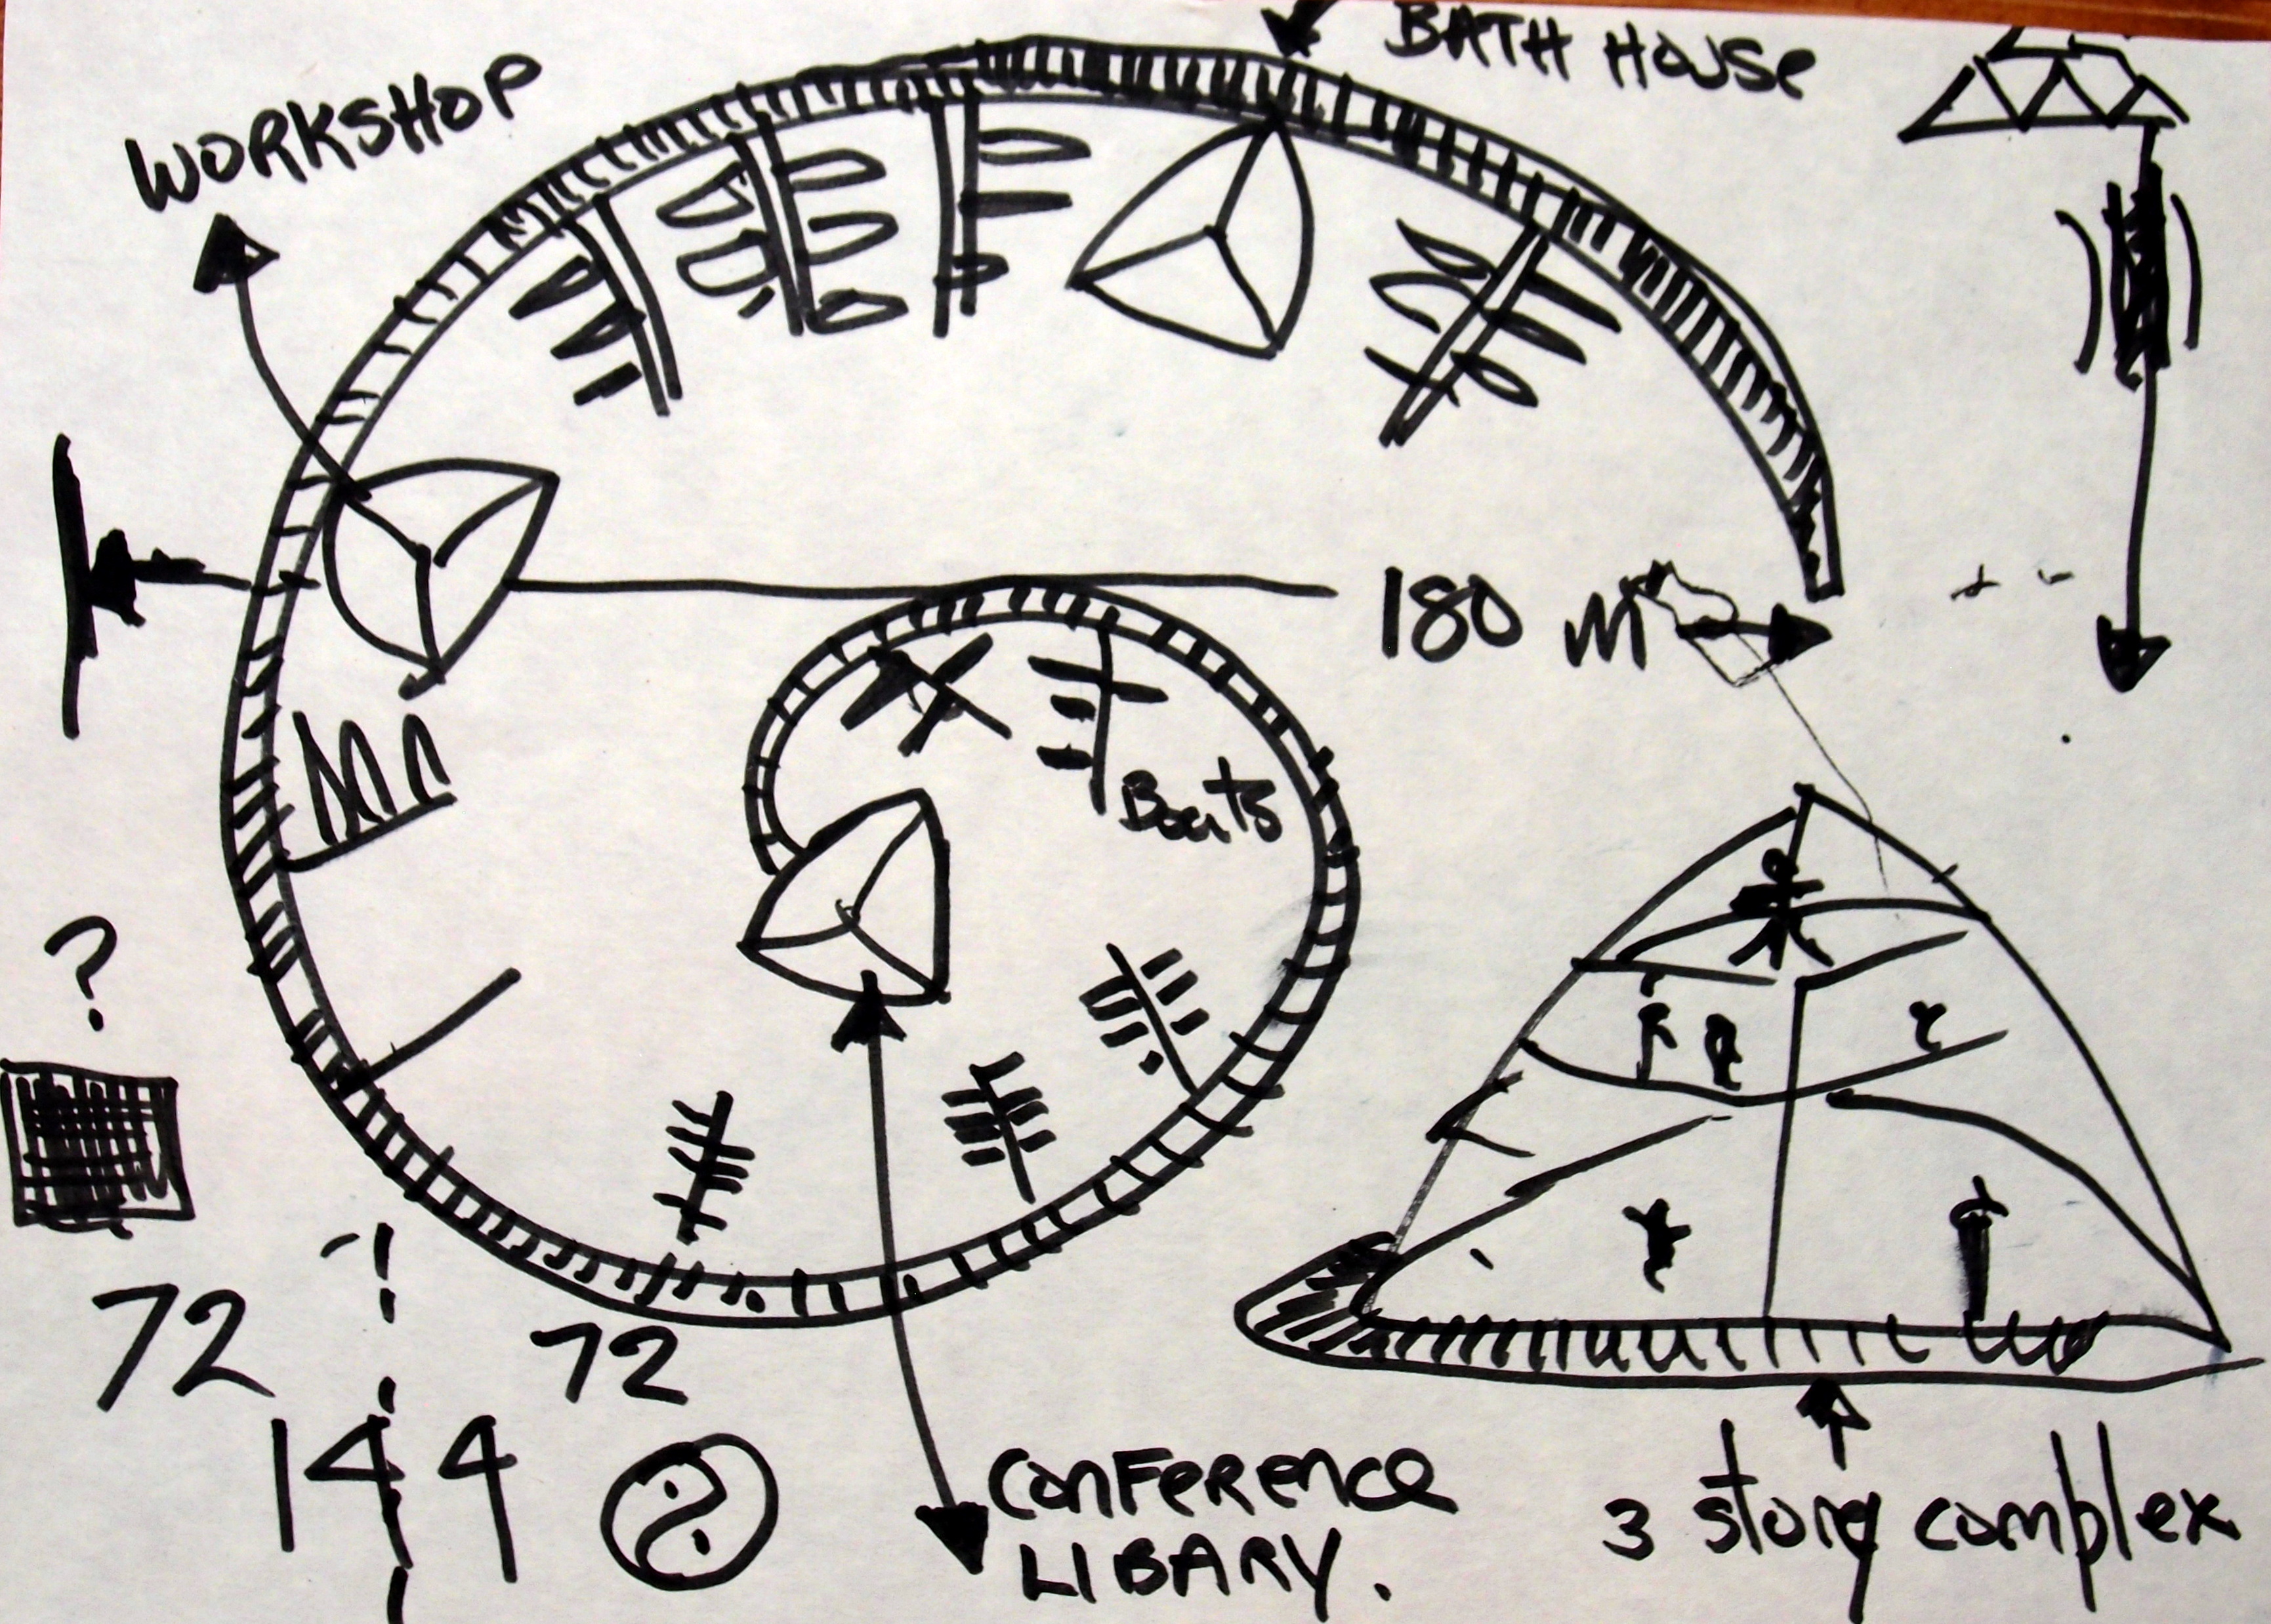 BATH HOUSE
WORKSHOP
180 M
Boats
?
72
72
144
CONFERENCE
LIBARY.
3 story complex